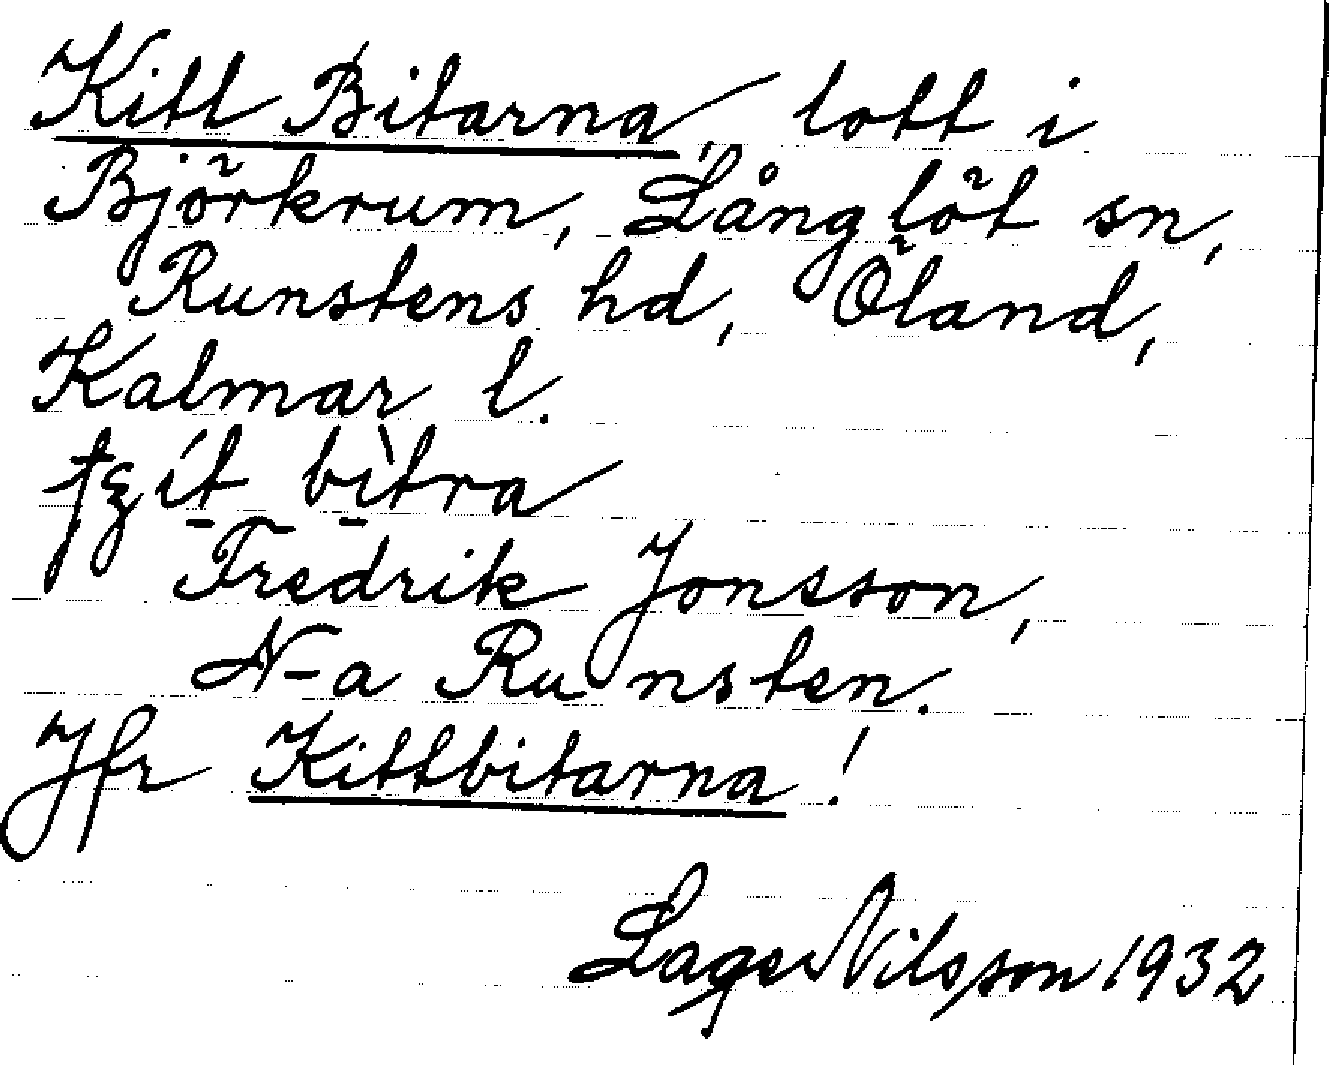 Kitt Bitarna, lott i
Björkrum, Långlöt sn,
Runstens hd, Öland,
Kalmar l.
bìtra
Fredrik Jonsson,
N-a Runsten.
Jfr Kittbitarna!
Lage Nilsson 1932